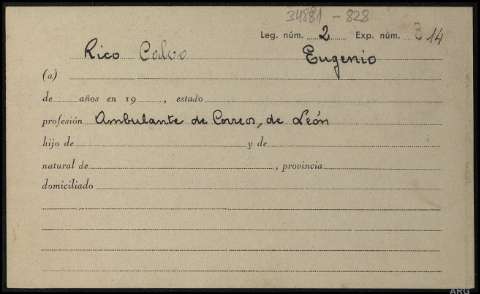 34881 - 828
Leg. núm. 2 Exp. núm. 314
Rico Calvo Eugenio
(a)
de años en 19 , estado
profesión Ambulante de Correos, de León
hijo de y de
natural de , provincia
domiciliado
ARG